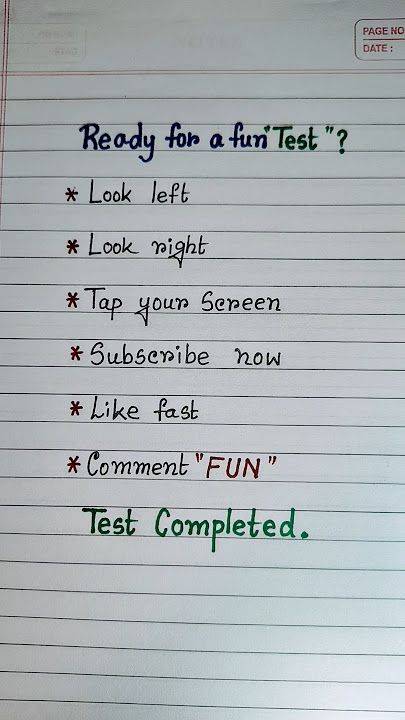 PAGE NO
DATE :
Ready for a fun "Test"?
* Look left
* Look right
* Tap your Screen
* Subscribe now
* Like fast
* Comment "FUN"
Test Completed.